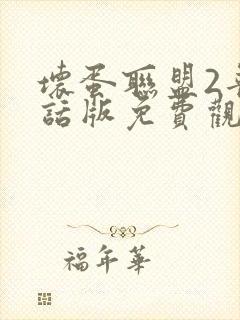 壞蛋聯盟2
話版免費觀
福年華